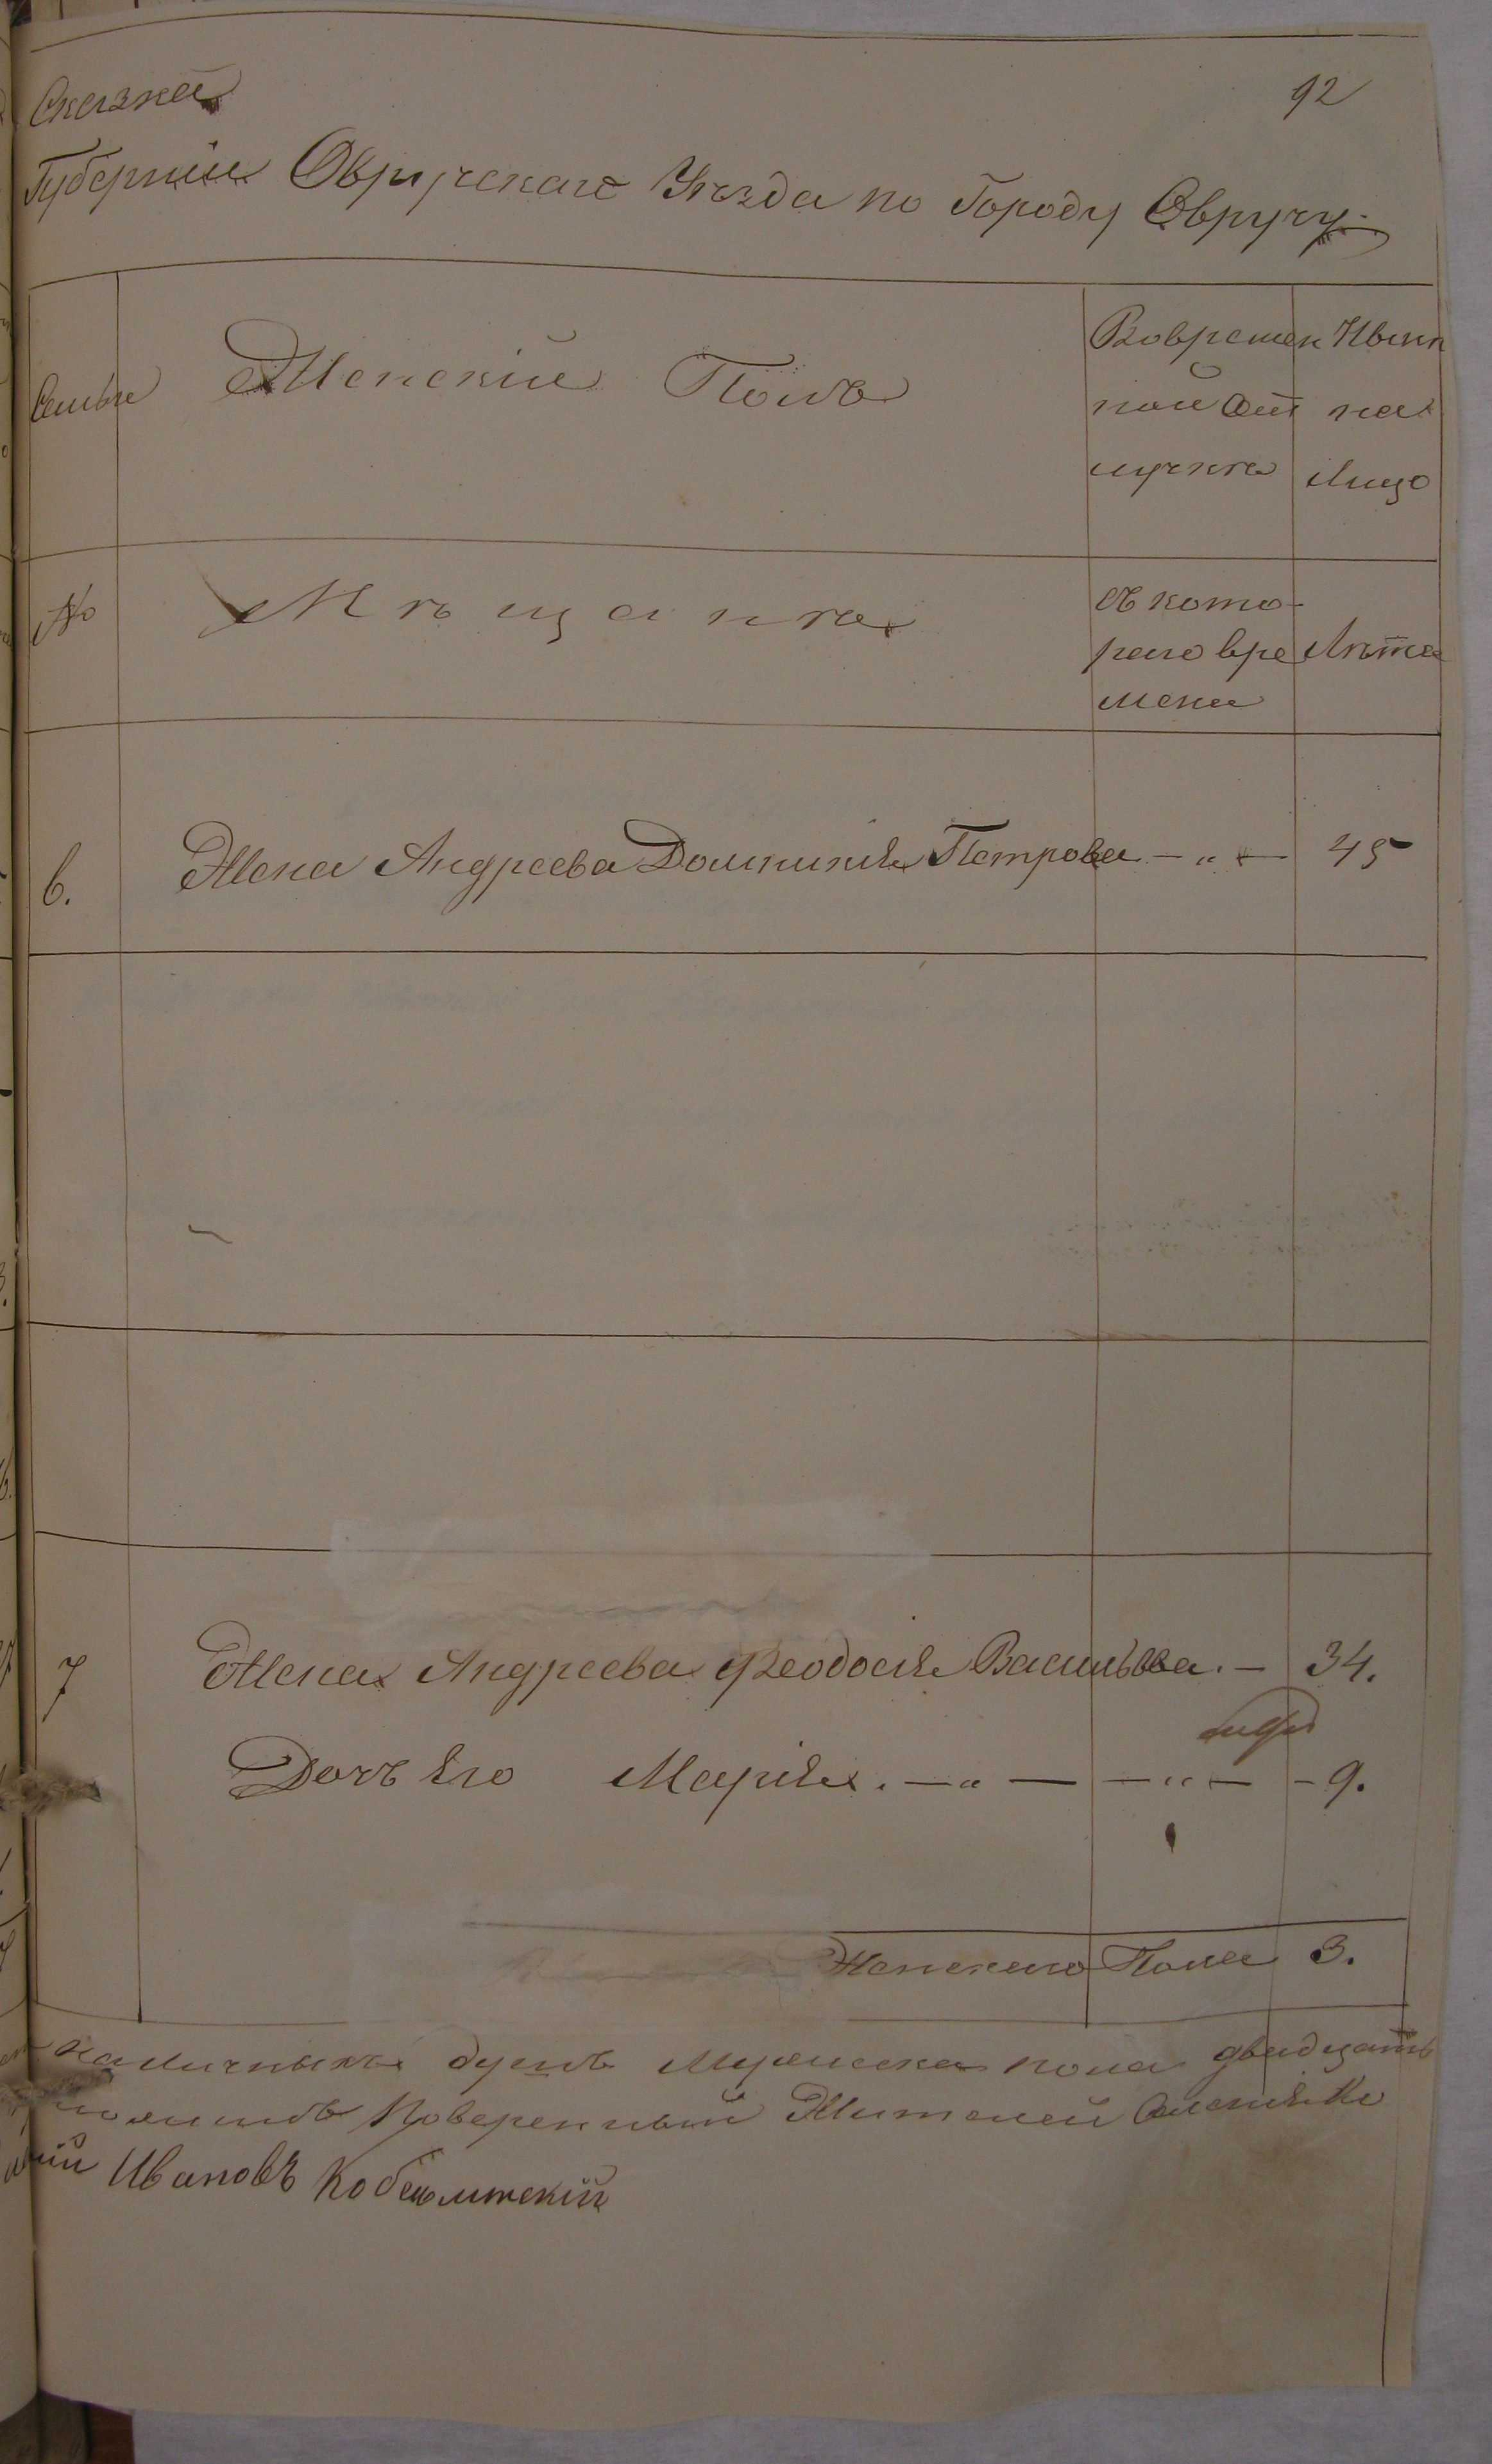 92
Сказка
Губернии Овручскаго Уѣзда по Городу Овручу
Семьи
Женскій Полъ
Вовремен
ной От
лучки
Нынѣ
на
Лицо
№
Мѣщанка
съ кото-
раго вре
мени
Лѣта
6.
Жена Андреева Домникія Петрова — „ — 45
7
Жена Андреева Феодосія Васильева. — 34.
Дочь Его Марія. — „ — — „ — — 9.
Женскаго Пола 3.
наличныхъ душъ Мужеска пола двадцать
Повѣренный Жителей
Ивановъ